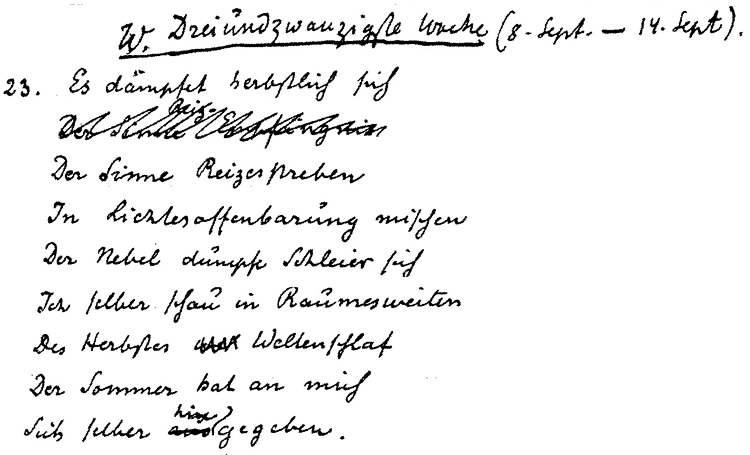 W. Dreiundzwanzigste Woche (8. Sept. — 14. Sept).
23. Es dämpfet herbstlich sich
Reiz-
Der Sinne
Der Sinne Reizesstreben
In Lichtesoffenbarung mischen
Der Nebel dumpfe Schleier sich
Ich selber schau in Raumesweiten
Des Herbstes Weltenschlaf
Der Sommer hat an mich
Sich selber hingegeben.